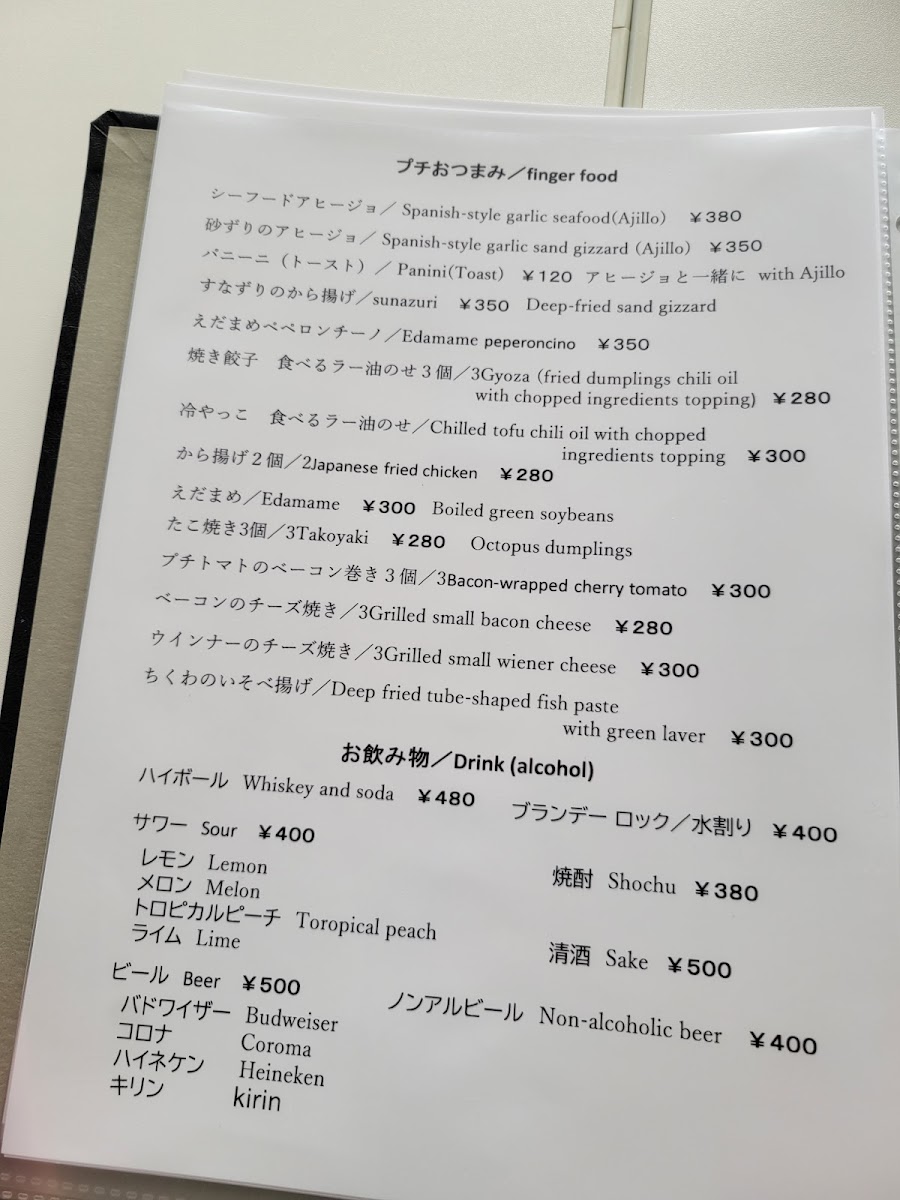 プチおつまみ／finger food
シーフードアヒージョ／ Spanish-style garlic seafood(Ajillo) ￥380
砂ずりのアヒージョ／ Spanish-style garlic sand gizzard (Ajillo) ￥350
パニーニ（トースト）／ Panini(Toast) ￥120 アヒージョと一緒に with Ajillo
すなずりのから揚げ／sunazuri ￥350 Deep-fried sand gizzard
えだまめペペロンチーノ／Edamame peperoncino ￥350
焼き餃子 食べるラー油のせ３個／3Gyoza (fried dumplings chili oil
with chopped ingredients topping) ￥280
冷やっこ 食べるラー油のせ／Chilled tofu chili oil with chopped
ingredients topping ￥300
から揚げ２個／2Japanese fried chicken ￥280
えだまめ／Edamame ￥300 Boiled green soybeans
たこ焼き3個／3Takoyaki ￥280 Octopus dumplings
プチトマトのベーコン巻き３個／3Bacon-wrapped cherry tomato ￥300
ベーコンのチーズ焼き／3Grilled small bacon cheese ￥280
ウインナーのチーズ焼き／3Grilled small wiener cheese ￥300
ちくわのいそべ揚げ／Deep fried tube-shaped fish paste
with green laver ￥300
お飲み物／Drink (alcohol)
ハイボール Whiskey and soda ￥480
ブランデー ロック／水割り ￥400
サワー Sour ￥400
レモン Lemon
メロン Melon
トロピカルピーチ Toropical peach
ライム Lime
焼酎 Shochu ￥380
清酒 Sake ￥500
ビール Beer ￥500
バドワイザー Budweiser
コロナ Coroma
ハイネケン Heineken
キリン kirin
ノンアルビール Non-alcoholic beer ￥400